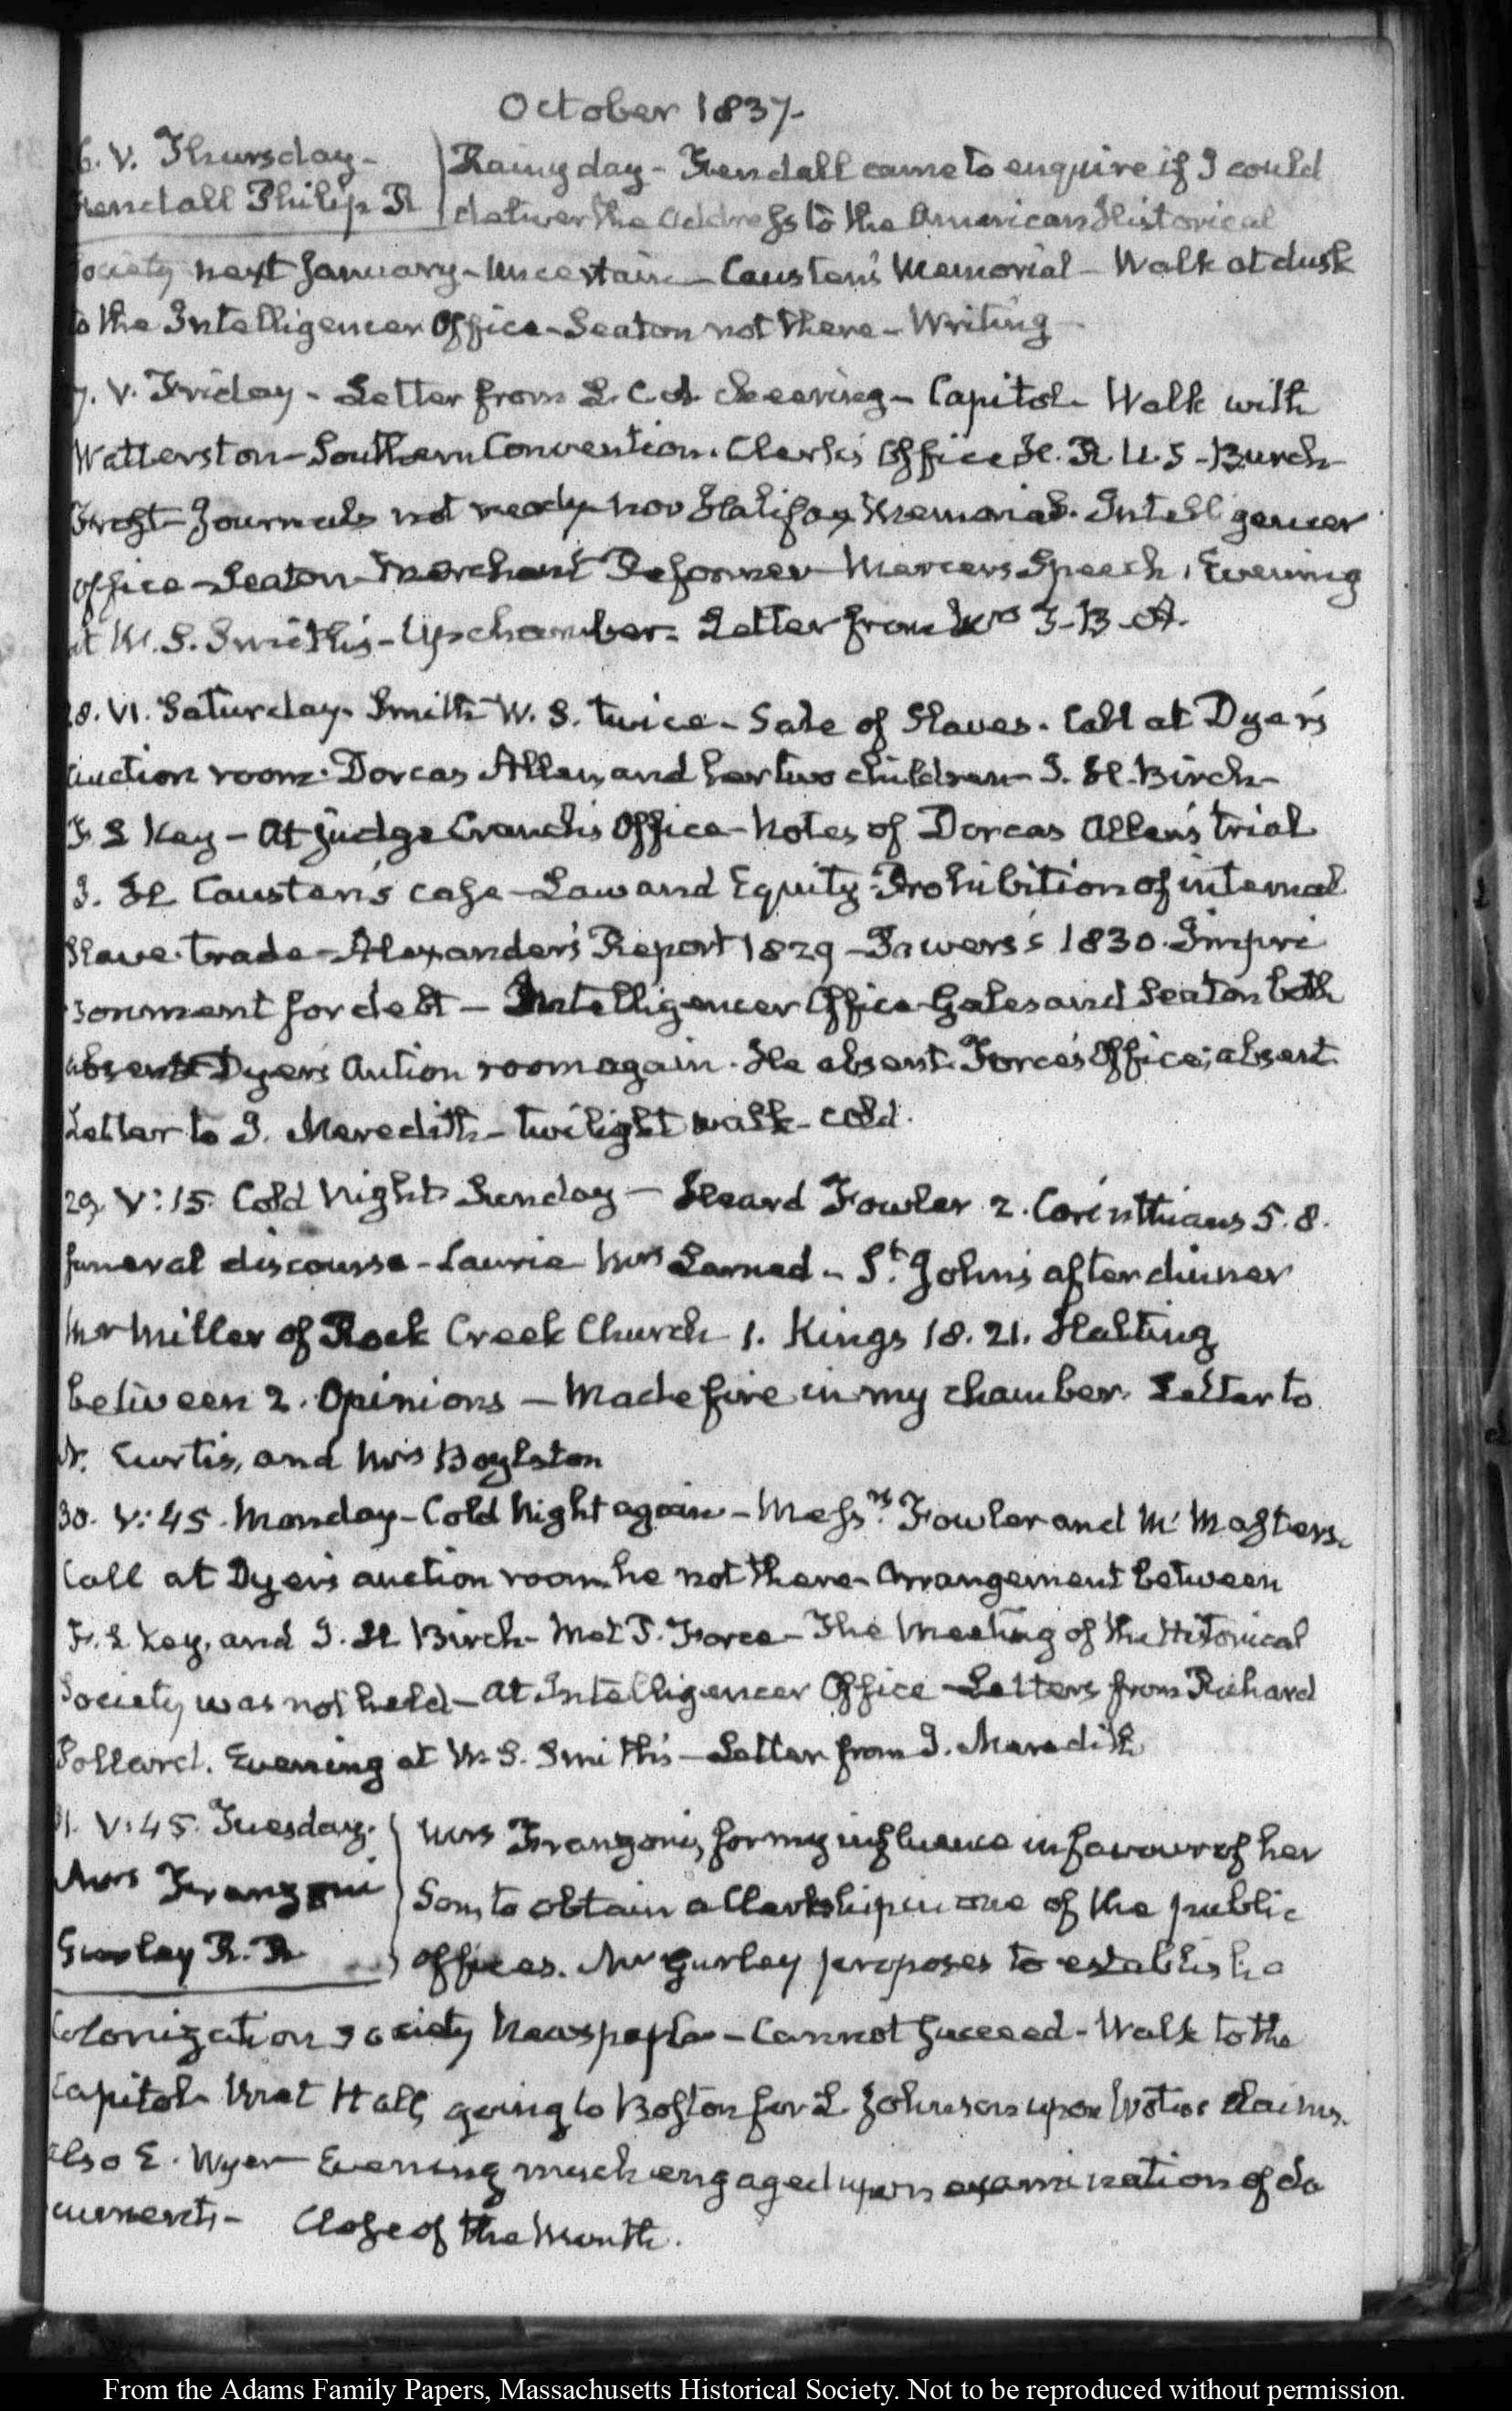 October 1837.
6. V. Thursday-
Fendall Philip R
Rainy day - Fendall came to enquire if I could
deliver the address to the American Historical
Society next January - uncertain - Causten's Memorial - Walk at dusk
to the Intelligencer Office - Seaton not there - Writing -
7. V. Friday - Letter from L. C. A. cheering - Capitol - Walk with
Watterston - Southern Convention. Clerk's Office H. R. U. S - Burch -
Frost - Journals not ready nor Halifax Memorial. Intelligencer
office - Seaton - Merchant Reformer - Mercer's Speech. Evening
at W. S. Smith's - Up chamber - Letter from Mrs T-B-A.
28. VI. Saturday. Smith W. S. twice - Sale of Slaves. Call at Dyer's
auction room. Dorcas Allen, and her two children - J. H. Birch -
F. S Key - At judge Cranch's Office - Notes of Dorcas Allen's trial
J. H Causten's case - Law and Equity. Prohibition of internal
Slave trade - Alexander's Report 1829 - Powers's 1830. Impri
sonment for debt - Intelligencer Office Gales and Seaton both
absent - Dyer's Aution room again. He absent. Force's Office; absent
Letter to J. Meredith - twilight walk - cold.
29. V:15. Cold Night. Sunday - Heard Fowler 2. Corinthians 5. 8.
funeral discourse - Laurie Mrs Larned - St. John's after dinner
Mr Miller of Rock Creek Church 1. Kings 18. 21. Halting
between 2. Opinions - Made fire in my chamber. Letter to
N. Curtis, and Mrs Boylston
30. V:45. Monday - Cold Night again - Messrs. Fowler and Mc Masters.
Call at Dyer's auction room he not there - Arrangement between
F. S. Key, and J. H Birch - Met P. Force - The Meeting of the Historical
Society was not held - at Intelligencer Office - Letters from Richard
Pollard. Evening at W. S. Smith's - Letter from J. Meredith
31. V:45. Tuesday.
Mrs Franzoni
Gurley R. R
Mrs Franzoni, for my influence in favour of her
Son, to obtain a Clerkship in one of the public
offices. Mr Gurley proposes to establish a
Colonization Society Newspaper - Cannot succeed - Walk to the
Capitol - Met Hall, going to Boston for L Johnson upon claims.
also E. Wyer - Evening much engaged upon examination of do
cuments - Close of the Month.
From the Adams Family Papers, Massachusetts Historical Society. Not to be reproduced without permission.